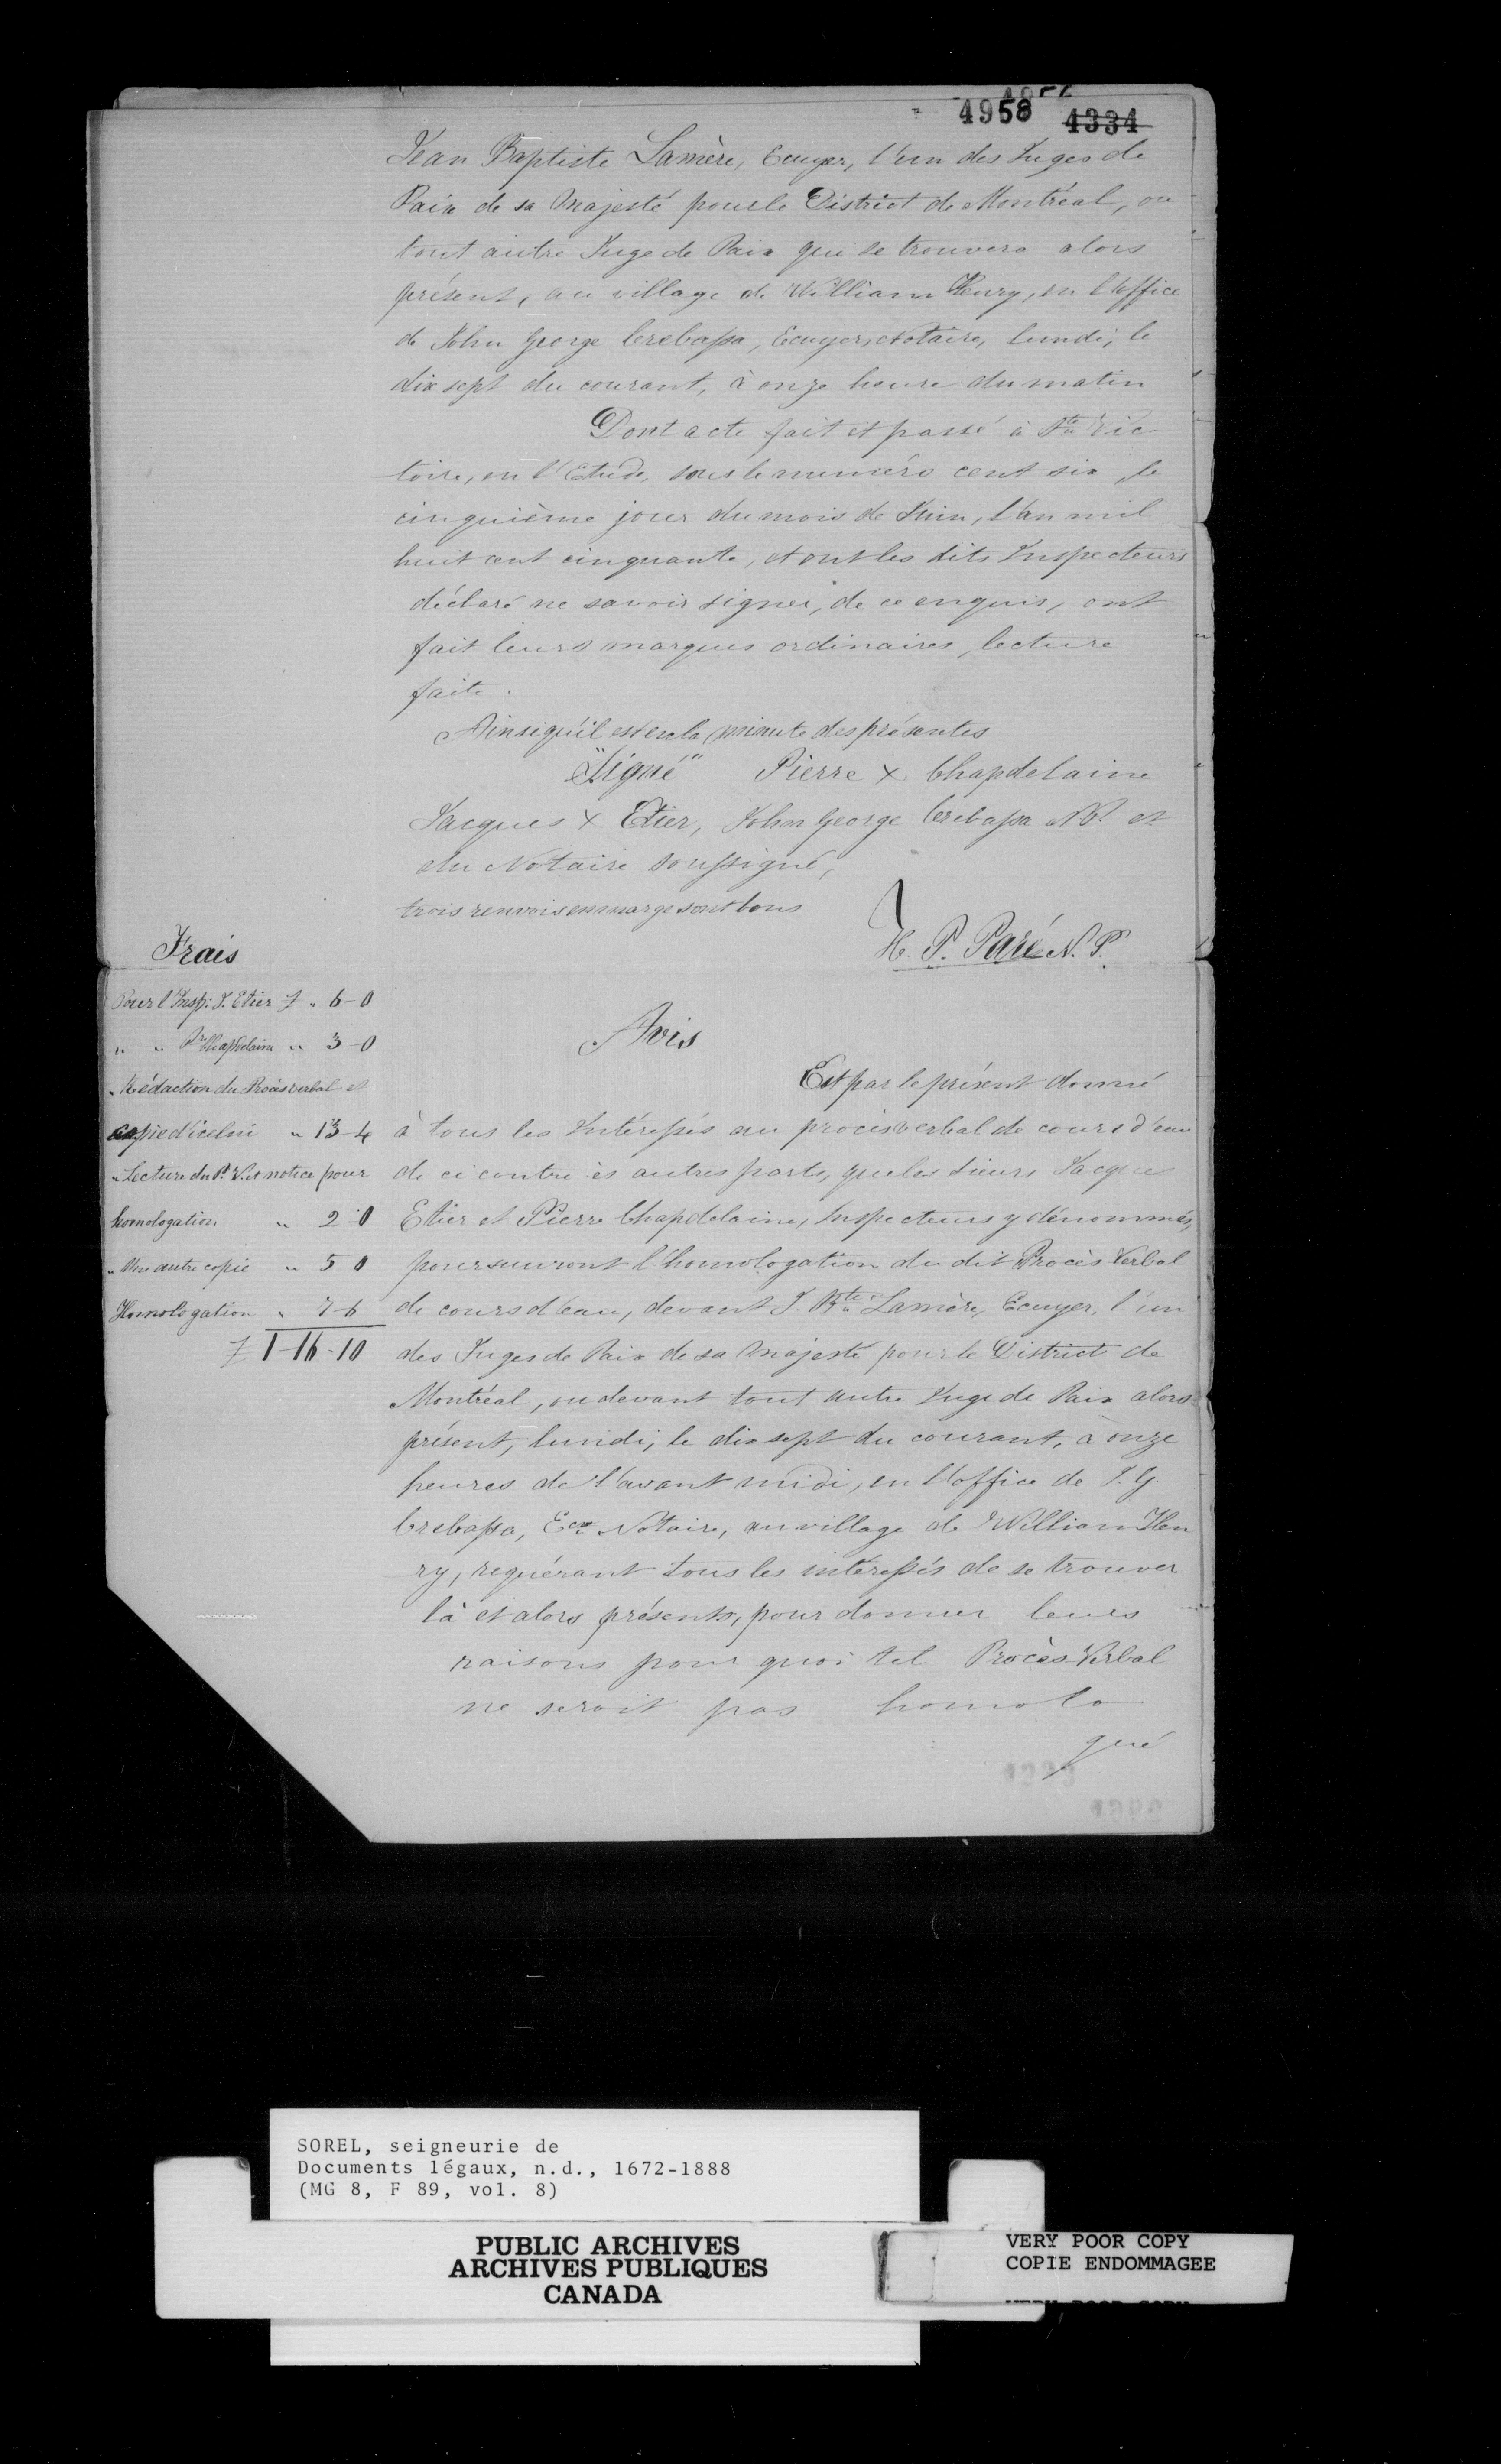 4958 4334
Jean Baptiste Lamère, Ecuyer, l'un des Juges de
Paix de sa Majesté pour le District de Montréal, ou
tout autre Juge de Paix qui se trouvera alors
présent, au village de William Henry, en l'office
de John George Crebassa, Ecuyer, Notaire, lundi, le
dix sept du courant, à onze heure du matin
Dont acte fait et passé à Ste Vic
toire, en l'Etude, sous le numéro cent six, le
cinquième jour du mois de Juin, l'an mil
huit cent cinquante, et ont les dits Inspecteurs
déclaré ne savoir signer, de ce enquis, ont
fait leurs marques ordinaires, lecture
faite.
Ainsi qu'il est en la minute des présentes
"Signé" Pierre X Chapdelaine
Jacques X Etier, John George Crebassa N.P. et
du Notaire soussigné,
trois renvois en marge sont bons
H. P. Paré N. P.
Frais
Pour l'Insp: J. Etier £ " 6-0
" " Pre Chapdelaine " 3-0
" Rédaction du Procès verbal et
copie d'icelui " 13-4
" Lecture du P. V. et notice pour
homologation " 2-0
" Une autre copie " 5 0
Homologation " 7-6
£ 1-16-10
Avis
Est par le présent donné
à tous les Intéressés au procès verbal de cours d'eau
de ci contre ès autres parts, que les sieurs Jacques
Etier et Pierre Chapdelaine, Inspecteurs y dénommés,
poursuivront l'homologation du dit Procès Verbal
de cours d'eau, devant J. Bte Lamère, Ecuyer, l'un
des Juges de Paix de sa Majesté pour le District de
Montréal, ou devant tout autre Juge de Paix alors
présent, lundi, le dix sept du courant, à onze
heures de l'avant midi, en l'office de J. G.
Crebassa, Ecr Notaire, au village de William Hen
ry, requérant tous les intéressés de se trouver
là et alors présents, pour donner leurs
raisons pour quoi tel Procès-Verbal
ne seroit pas homolo
gué
SOREL, seigneurie de
Documents légaux, n.d., 1672-1888
(MG 8, F 89, vol. 8)
PUBLIC ARCHIVES
ARCHIVES PUBLIQUES
CANADA
VERY POOR COPY
COPIE ENDOMMAGEE
VERY POOR COPY